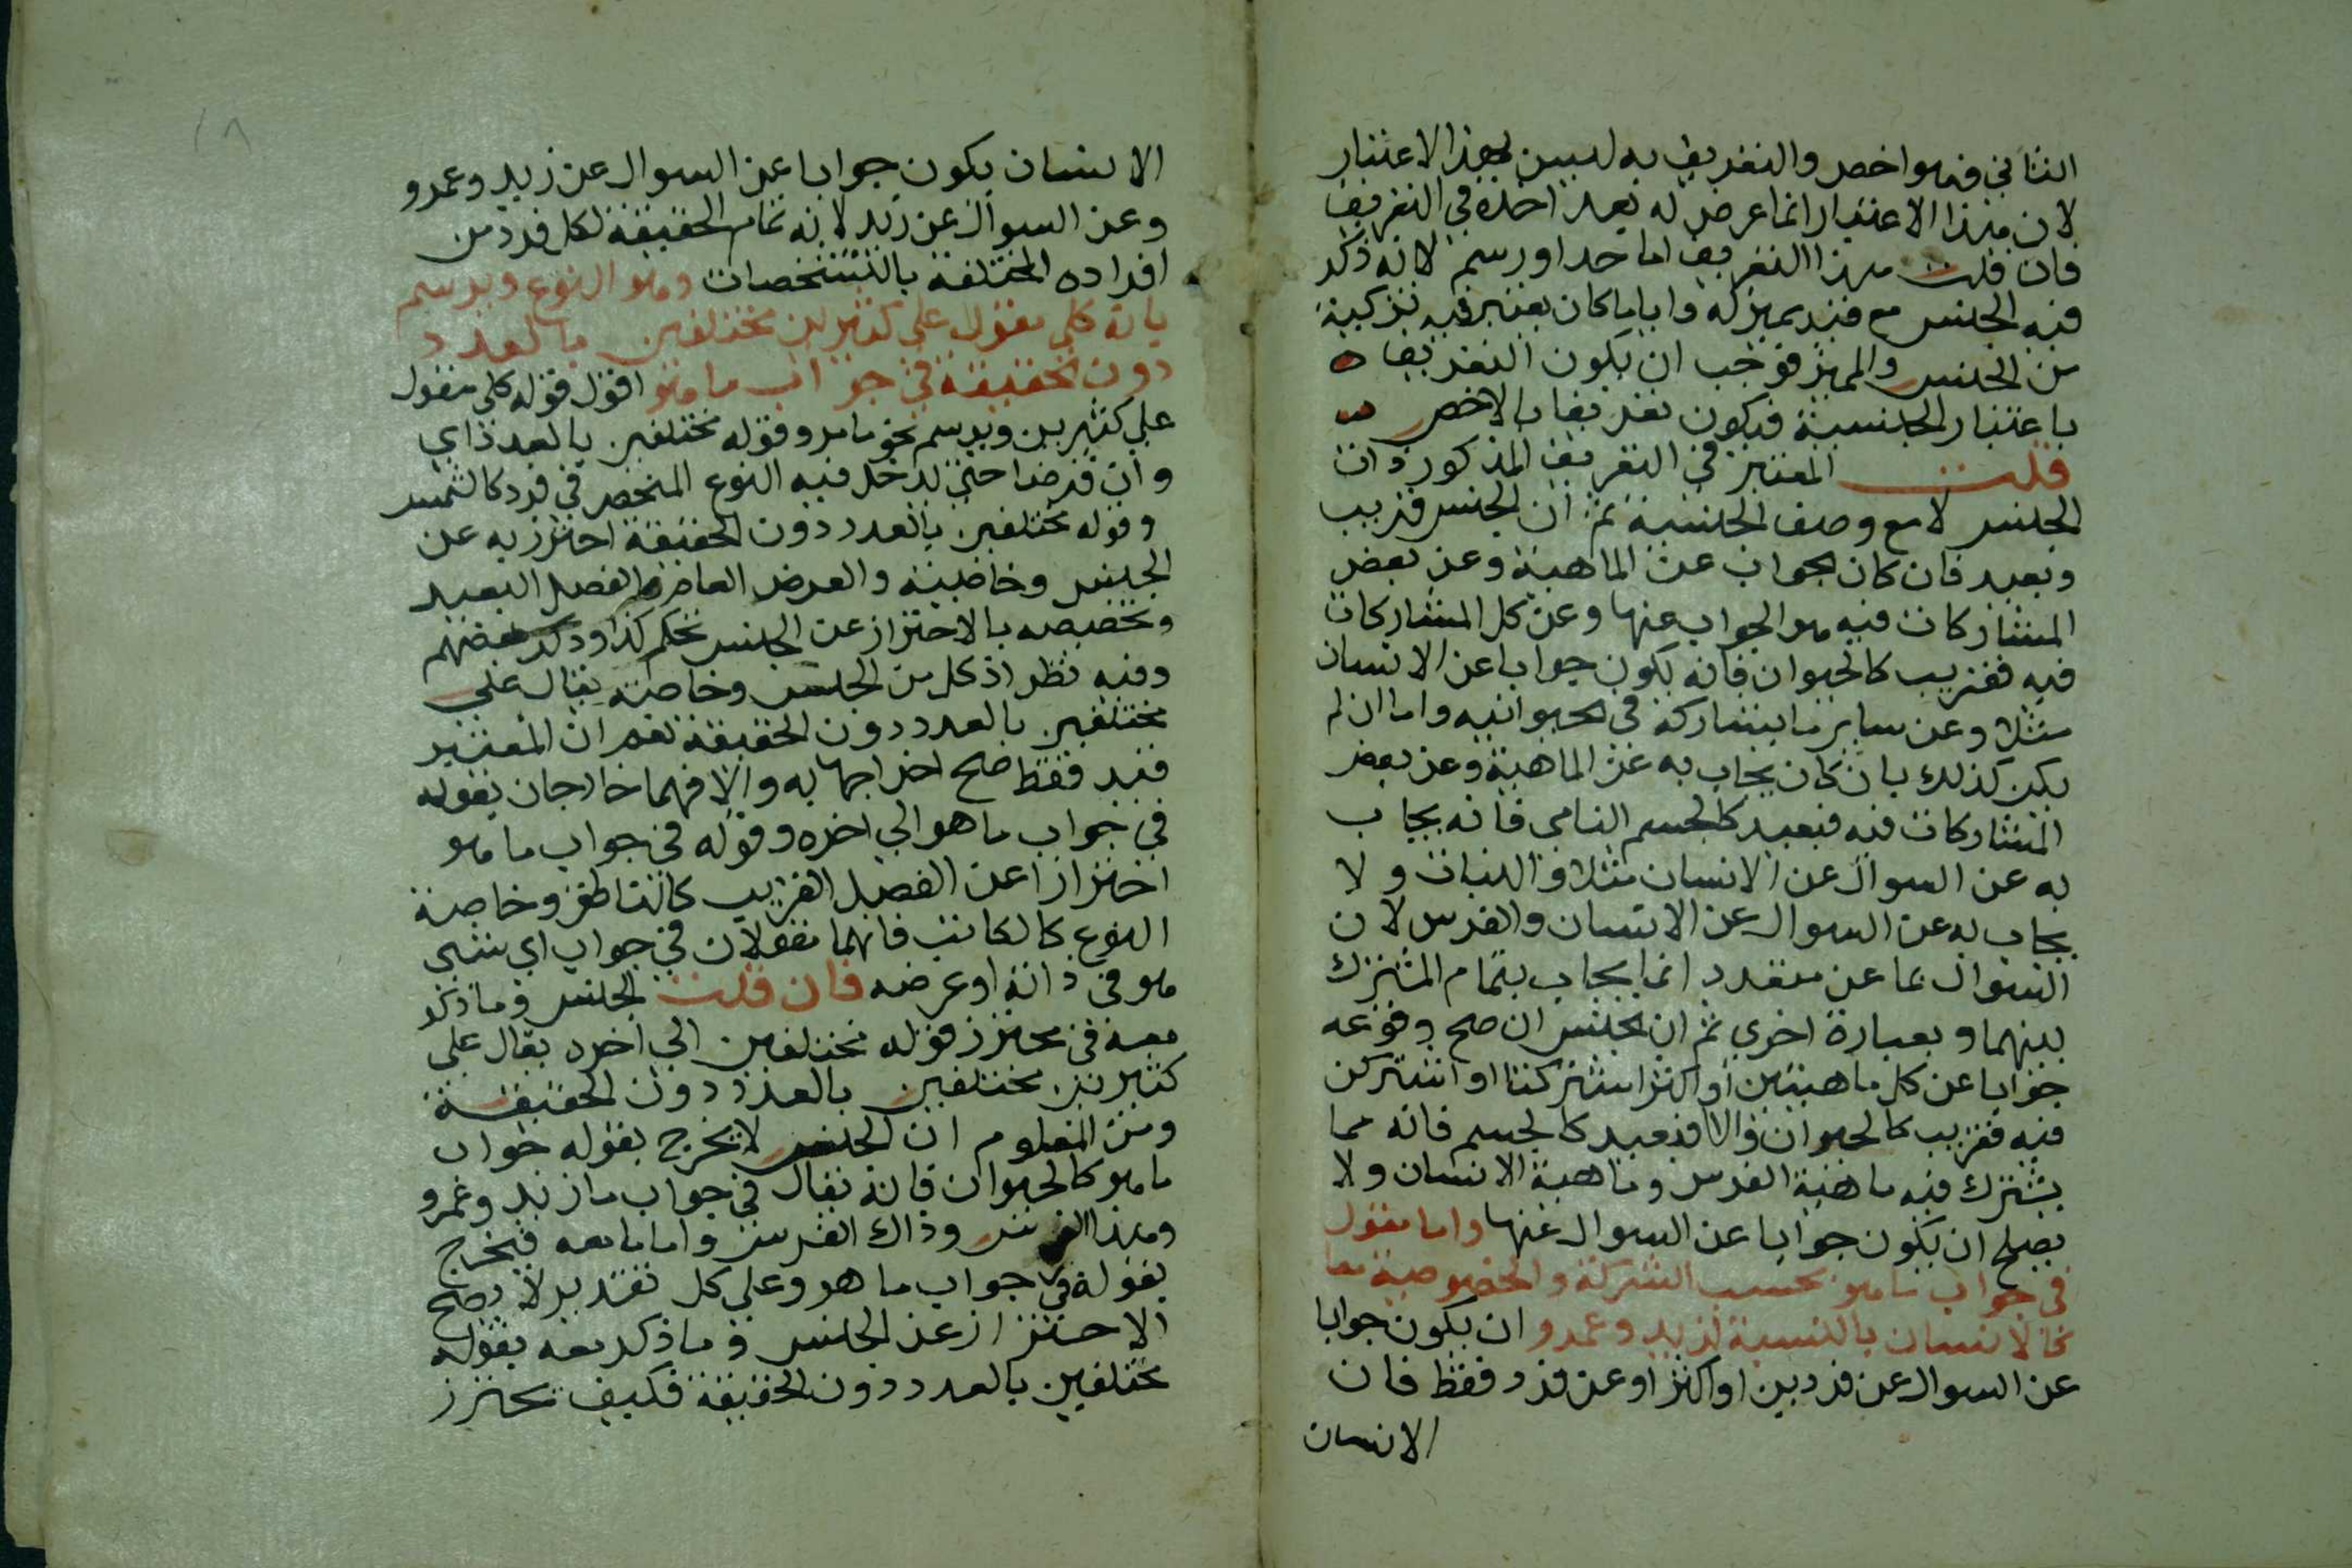 الثاني فهو اخص والتعريف به ليس بهذا الاعتبار
لان هذا الاعتبار انما عرض له بعد اخذه في التعريف
فان قلت هذا التعريف اما حدا او رسم لانه ذكر
فيه الجنس مع قيد يميزه وايا ما كان يعتبر فيه تركيبه
من الجنس والمميز فوجب ان يكون التعريف
باعتبار الجنسية فيكون تعريفا بالاخص
قلت المعتبر في التعريف المذكور ذات
الجنس لا مع وصف الجنسية ثم ان الجنس قريب
وبعيد فان كان الجواب عن الماهية وعن بعض
المشاركات فيه هو الجواب عنها وعن كل المشاركات
فيه فقريب كالحيوان فانه يكون جوابا عن الانسان
مثلا وعن ساير ما يشاركه في الحيوانيه واما ان لم
يكن كذلك بان كان يجاب به عن الماهية وعن بعض
المشاركات فيه فبعيد كالجسم النامي فانه يجاب
به عن السوال عن الانسان مثلا والنبات ولا
يجاب به عن السوال عن الانسان والفرس لان
السوال بما عن متعدد انما يجاب بتمام المشترك
بينهما وبعبارة اخري ثم ان الجنس ان صح وقوعه
جوابا عن كل ماهيتين او اكثر اشتركتا او اشتركن
فيه فقريب كالحيوان والا فبعيد كالجسم فانه مما
يشترك فيه ماهية الفرس وماهية الانسان ولا
يصلح ان يكون جوابا عن السوال عنها واما مقول
في جواب ما هو بحسب الشركة والخصوصية معا
كالانسان بالنسبة لزيد وعمرو ان يكون جوابا
عن السوال عن فردين او اكثر او عن فرد فقط فان
الانسان
١٨
الانسان يكون جوابا عن السوال عن زيد وعمرو
وعن السوال عن زيد لانه تمام الحقيقة لكل فرد من
افراده المختلفة بالتشخصات وهو النوع ويرسم
بانه كلي مقول علي كثيرين مختلفين بالعدد
دون الحقيقة في جواب ما هو اقول قوله كلي مقول
علي كثيرين ويرسم نحو ما مر وقوله مختلفين بالعدد اي
وان فرضا حتي يدخل فيه النوع المنحصر في فرد كالشمس
وقوله مختلفين بالعدد دون الحقيقة احترز به عن
الجنس وخاصيته والعرض العام والفصل البعيد
وتخصيصه بالاحتراز عن الجنس تحكم كذا ذكر بعضهم
وفيه نظر اذ كل من الجنس وخاصته يقال علي
مختلفين بالعدد دون الحقيقة نعم ان المعتبر
قيد فقط صح اخراجها به والا فهما خارجان بقوله
في جواب ما هو الي اخره وقوله في جواب ما هو
احترازا عن الفصل القريب كالناطق وخاصة
النوع كالكاتب فانهما مقولان في جواب اي شي
هو في ذاته او عرضه فان قلت الجنس وما ذكر
معه في محترز قوله مختلفين الي اخره يقال علي
كثيرين مختلفين بالعدد دون الحقيقة
ومن المعلوم ان الجنس لا يخرج بقوله جواب
ما هو كالحيوان فانه يقال في جواب ما زيد وعمرو
وهذا الفرس وذاك الفرس واما ما معه فيخرج
بقوله في جواب ما هو وعلي كل تقدير لا يصح
الاحتراز عن الجنس وما ذكر معه بقوله
مختلفين بالعدد دون الحقيقة فكيف تحترز